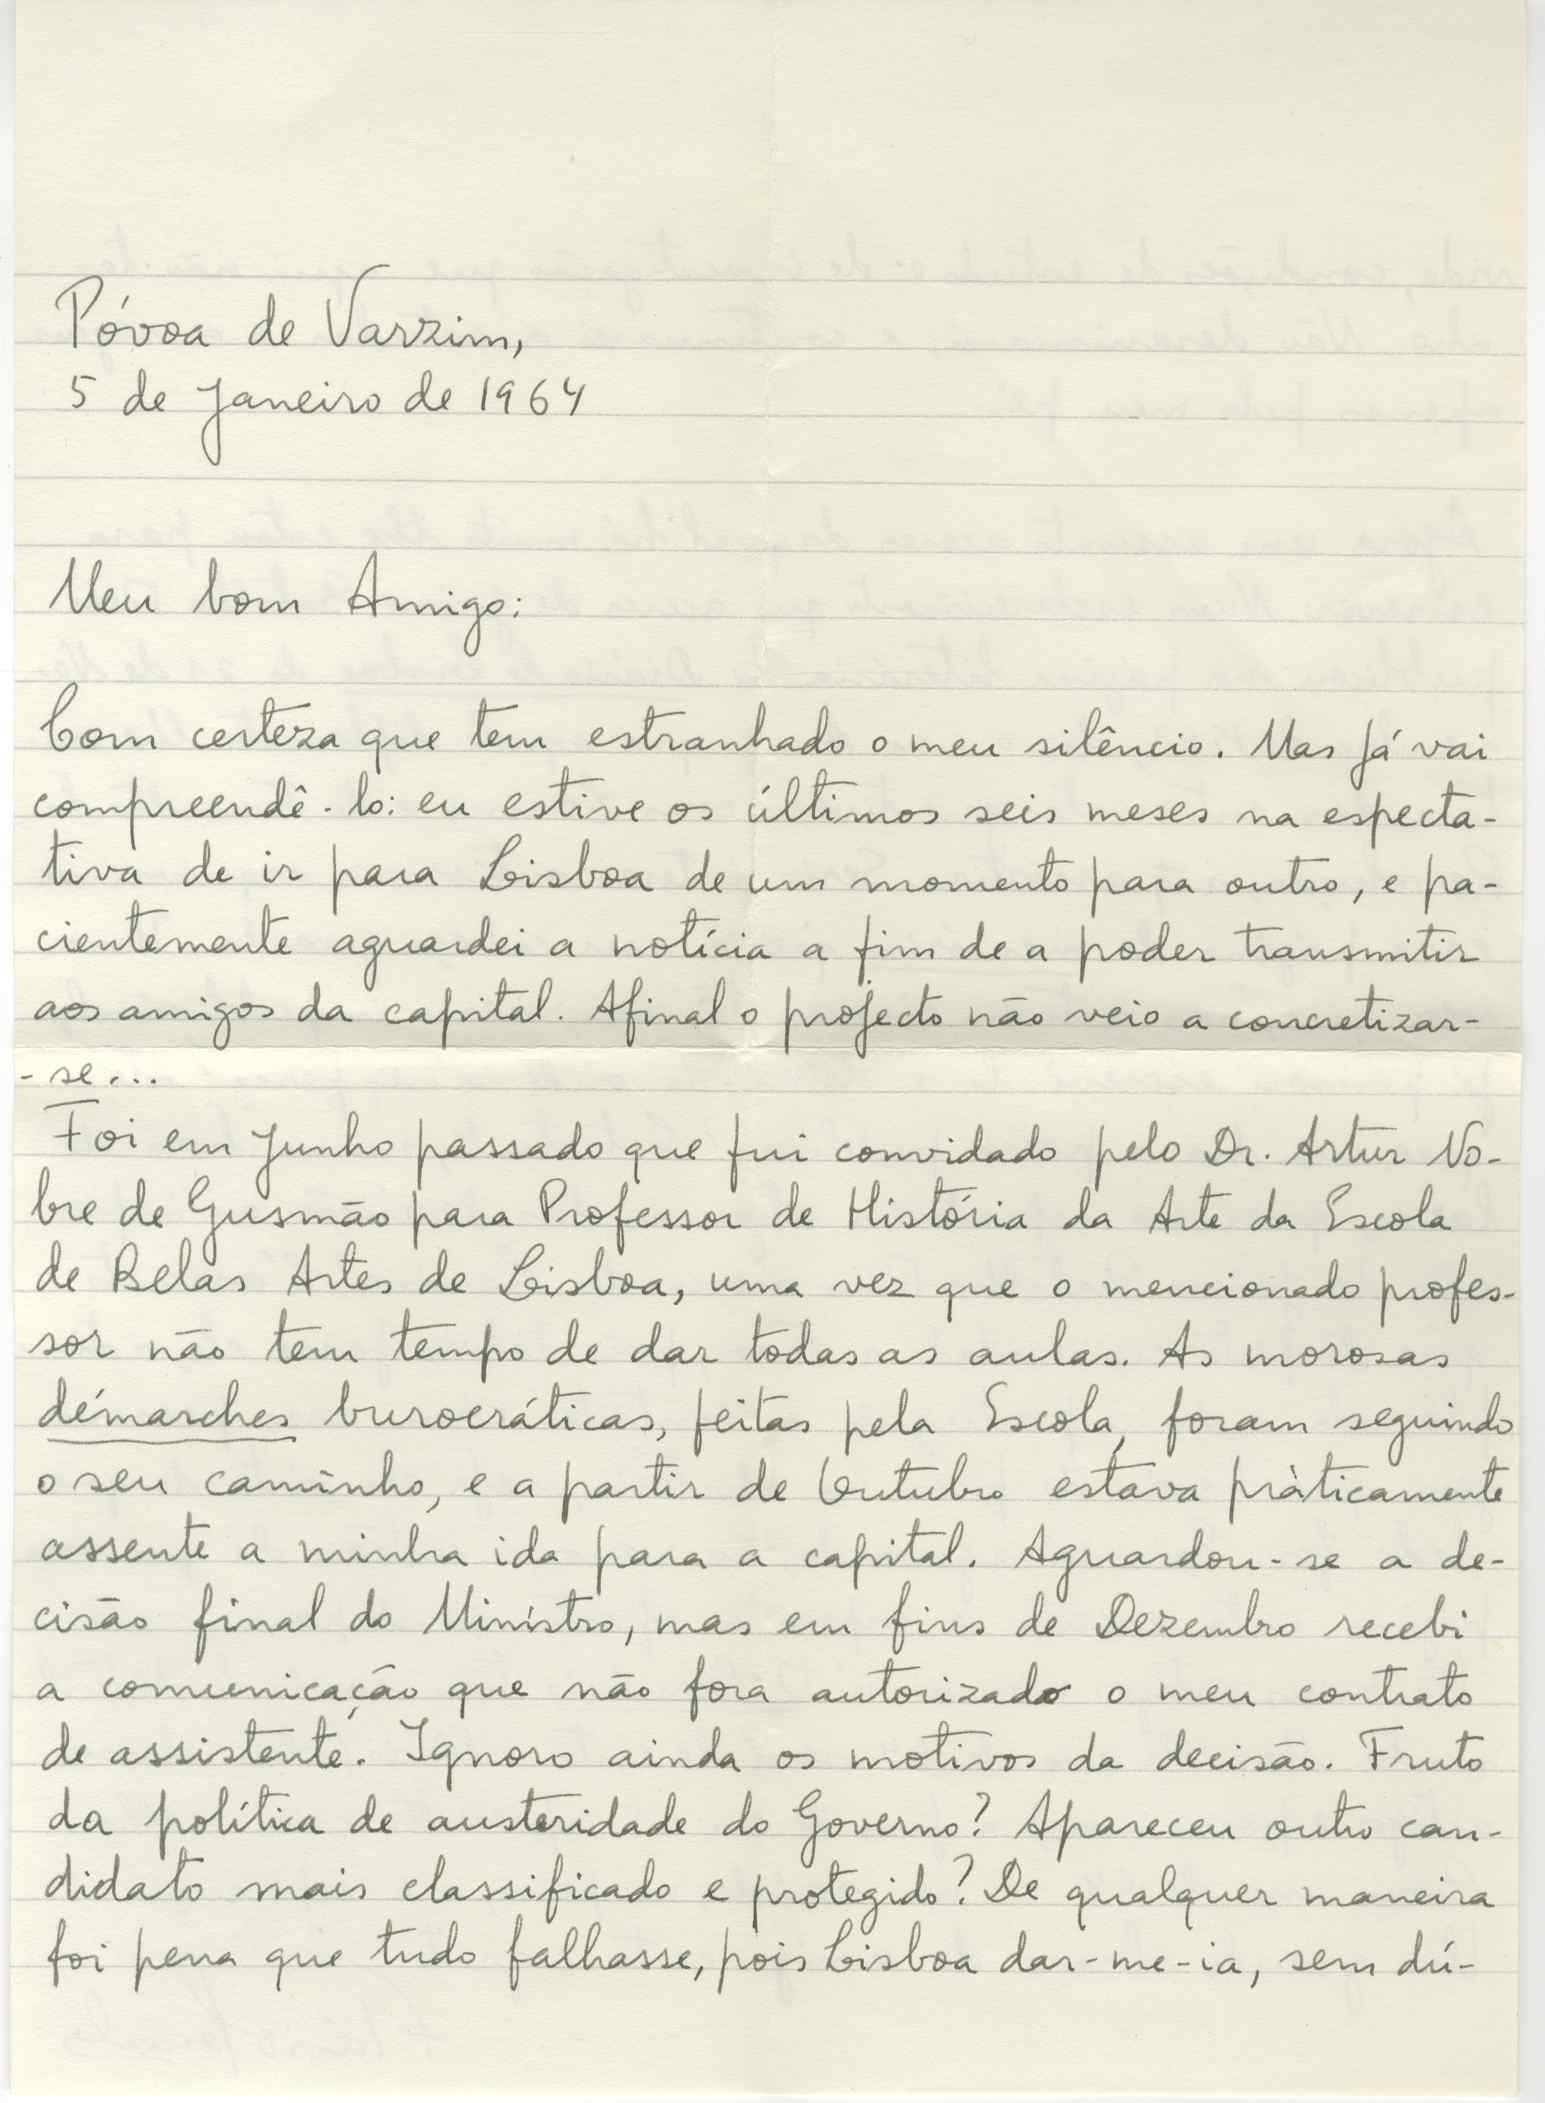 Póvoa de Varzim,
5 de Janeiro de 1964
Meu bom Amigo:
Com certeza que tem estranhado o meu silêncio. Mas já vai
compreendê-lo: eu estive os últimos seis meses na especta-
tiva de ir para Lisboa de um momento para outro, e pa-
cientemente aguardei a notícia a fim de a poder transmitir
aos amigos da capital. Afinal o projecto não veio a concretizar-
-se...
Foi em Junho passado que fui convidado pelo Dr. Artur No-
bre de Gusmão para Professor de História da Arte da Escola
de Belas Artes de Lisboa, uma vez que o mencionado profes-
sor não tem tempo de dar todas as aulas. As morosas
démarches burocráticas, feitas pela Escola, foram seguindo
o seu caminho, e a partir de Outubro estava pràticamente
assente a minha ida para a capital. Aguardou-se a de-
cisão final do Ministro, mas em fins de Dezembro recebi
a comunicação que não fora autorizado o meu contrato
de assistente. Ignoro ainda os motivos da decisão. Fruto
da política de austeridade do Governo? Apareceu outro can-
didato mais classificado e protegido? De qualquer maneira
foi pena que tudo falhasse, pois Lisboa dar-me-ia, sem dú-